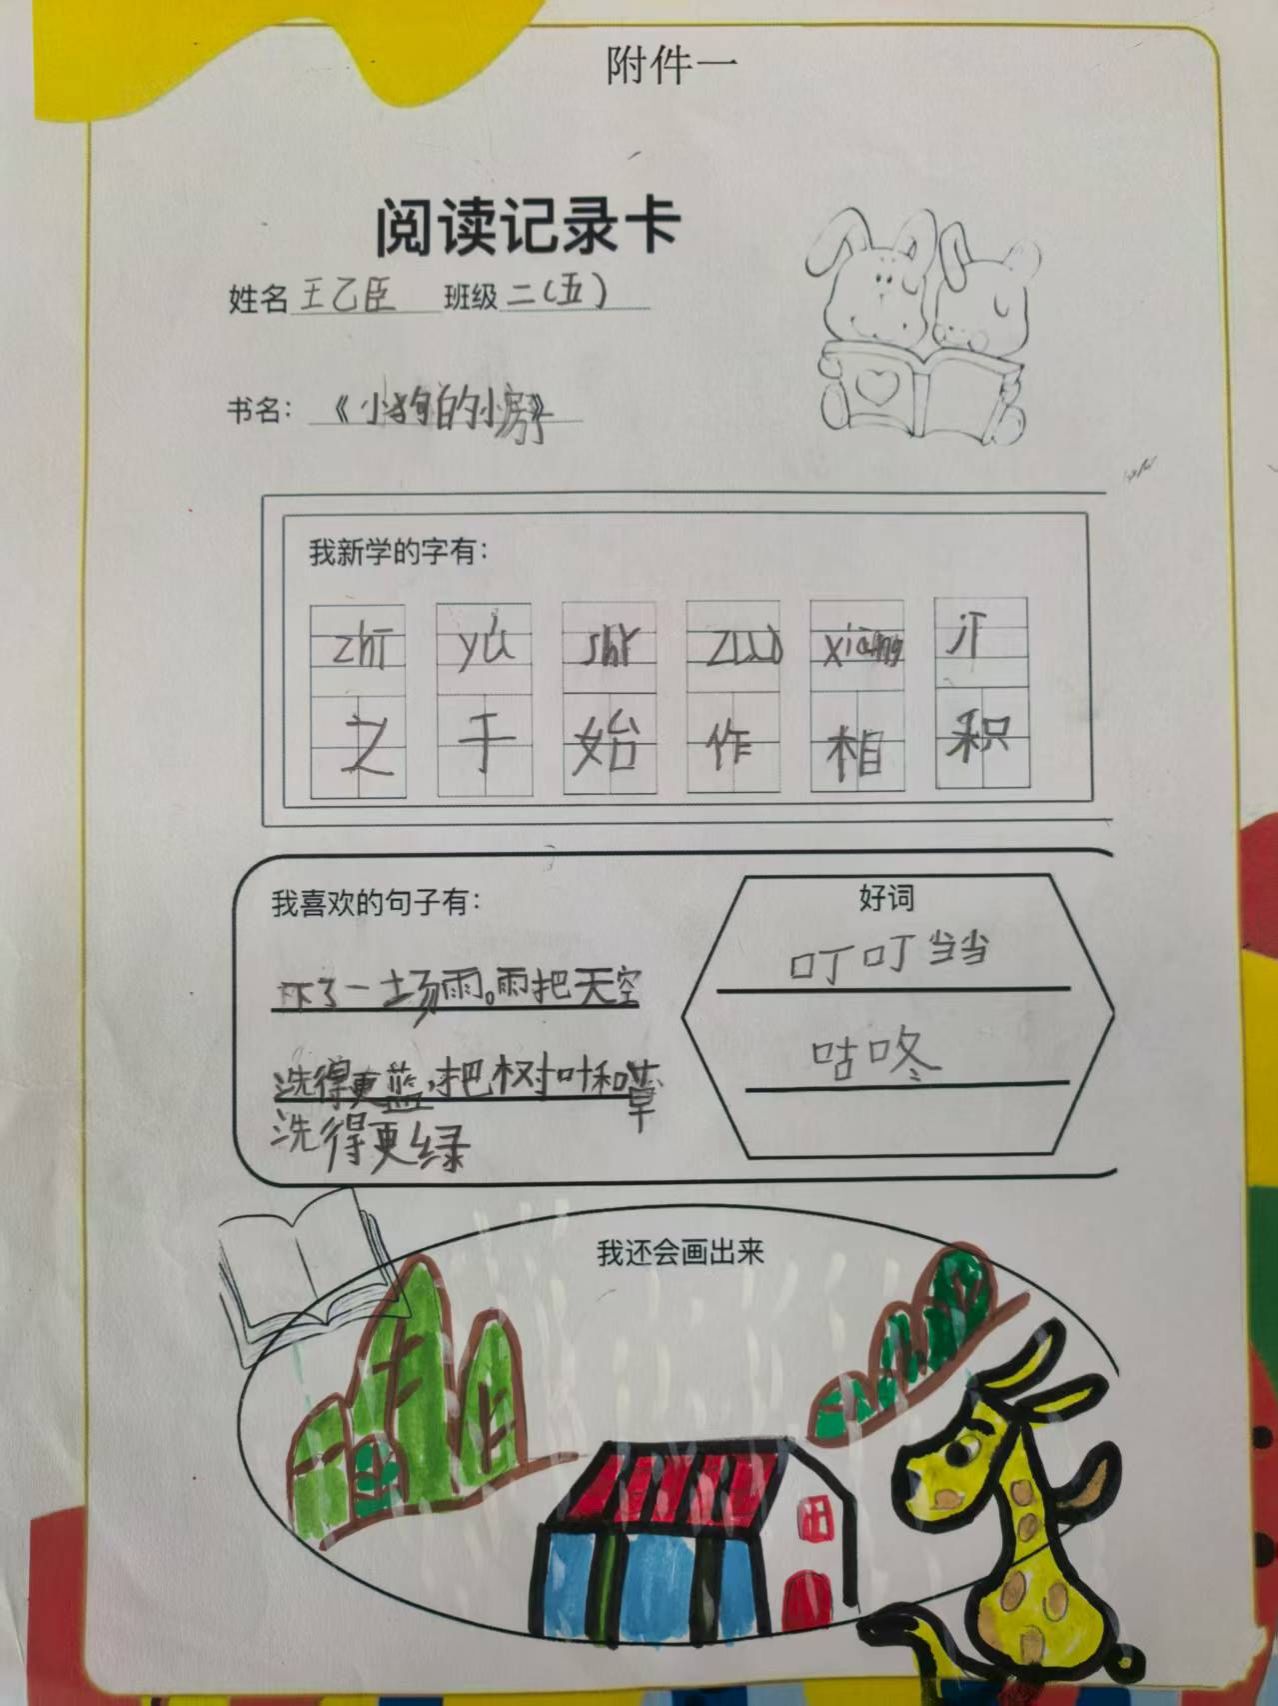 附件一
阅读记录卡
姓名 王乙臣 班级 二(五)
书名：《小狗的小房子》
我新学的字有：
zhī yú shǐ zuò xiāng jī
之 于 始 作 相 积
我喜欢的句子有：
下了一场雨。雨把天空
洗得更蓝，把树叶和草
洗得更绿
好词
叮叮当当
咕咚
我还会画出来